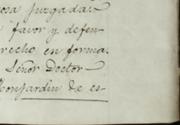 cosa juzgada
favor y defen
recho en forma.
Señor Doctor
Monjardin de es-